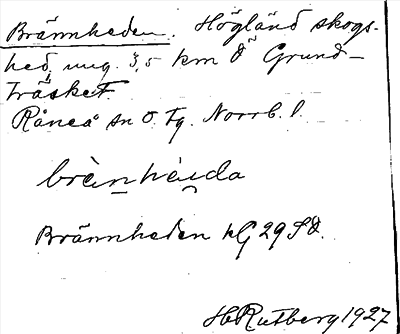 Brännheden. Högländ skogs-
hed ung. 3,5 km Ö Grund-
träsket.
Råneå sn O. Fg. Norrb. l.
brènhéida
Brännheden kG 29 SO.
H Rutberg 1927